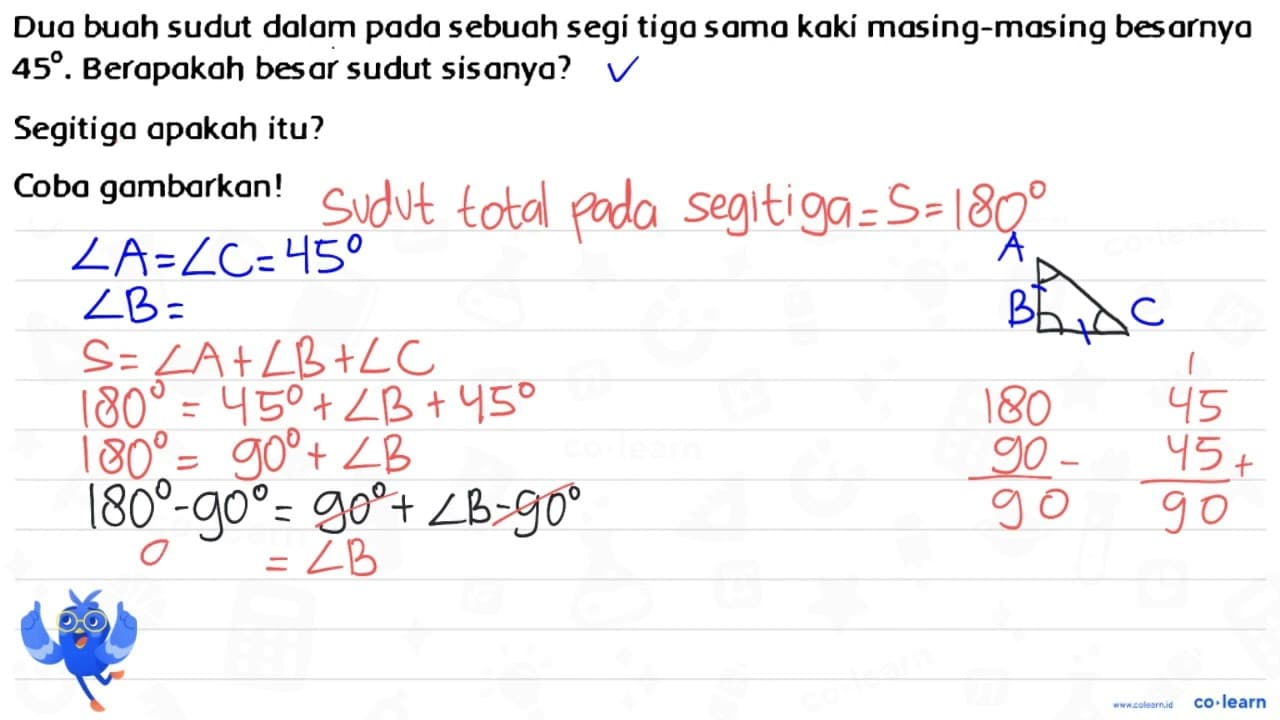 Dua buah sudut dalam pada sebuah segi tiga sama kaki masing-masing besarnya
45°. Berapakah besar sudut sisanya? ✓
Segitiga apakah itu?
Coba gambarkan!
Sudut total pada segitiga = S = 180°
∠A = ∠C = 45°
∠B =
S = ∠A + ∠B + ∠C
180° = 45° + ∠B + 45°
180° = 90° + ∠B
180° - 90° = 90° + ∠B - 90°
0 = ∠B
A
B
C
180
90 -
90
1
45
45 +
90
www.colearn.id co·learn